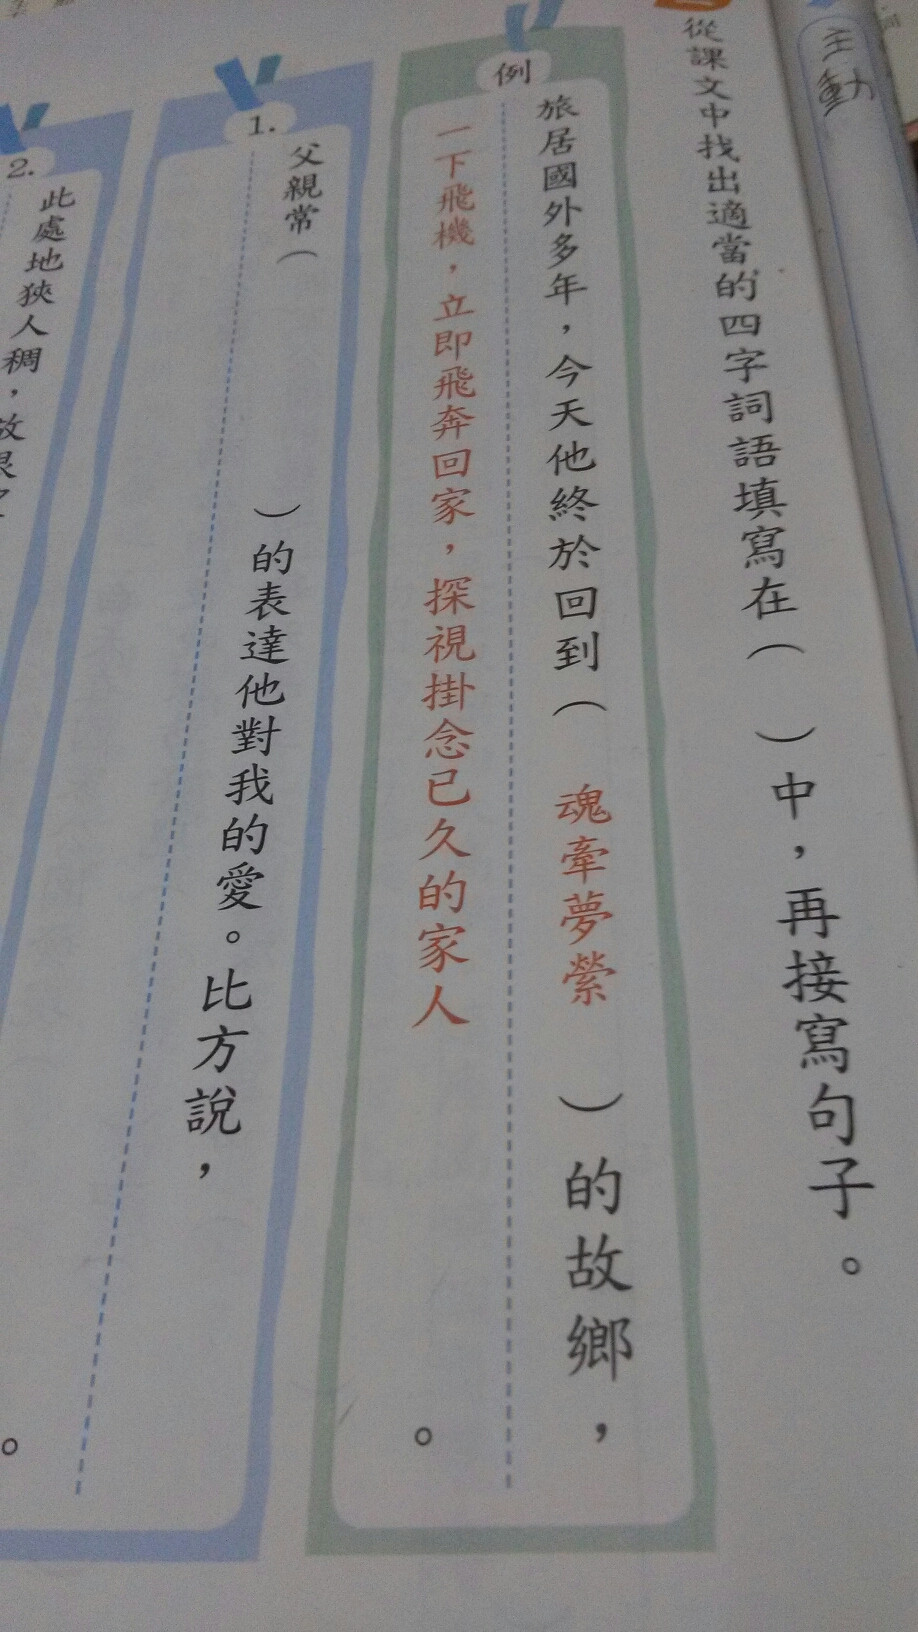 主動
從課文中找出適當的四字詞語填寫在（　）中，再接寫句子。
例
旅居國外多年，今天他終於回到（魂牽夢縈）的故鄉，
一下飛機，立即飛奔回家，探視掛念已久的家人。
1.
父親常（　）的表達他對我的愛。比方說，
。
2.
此處地狹人稠，放眼